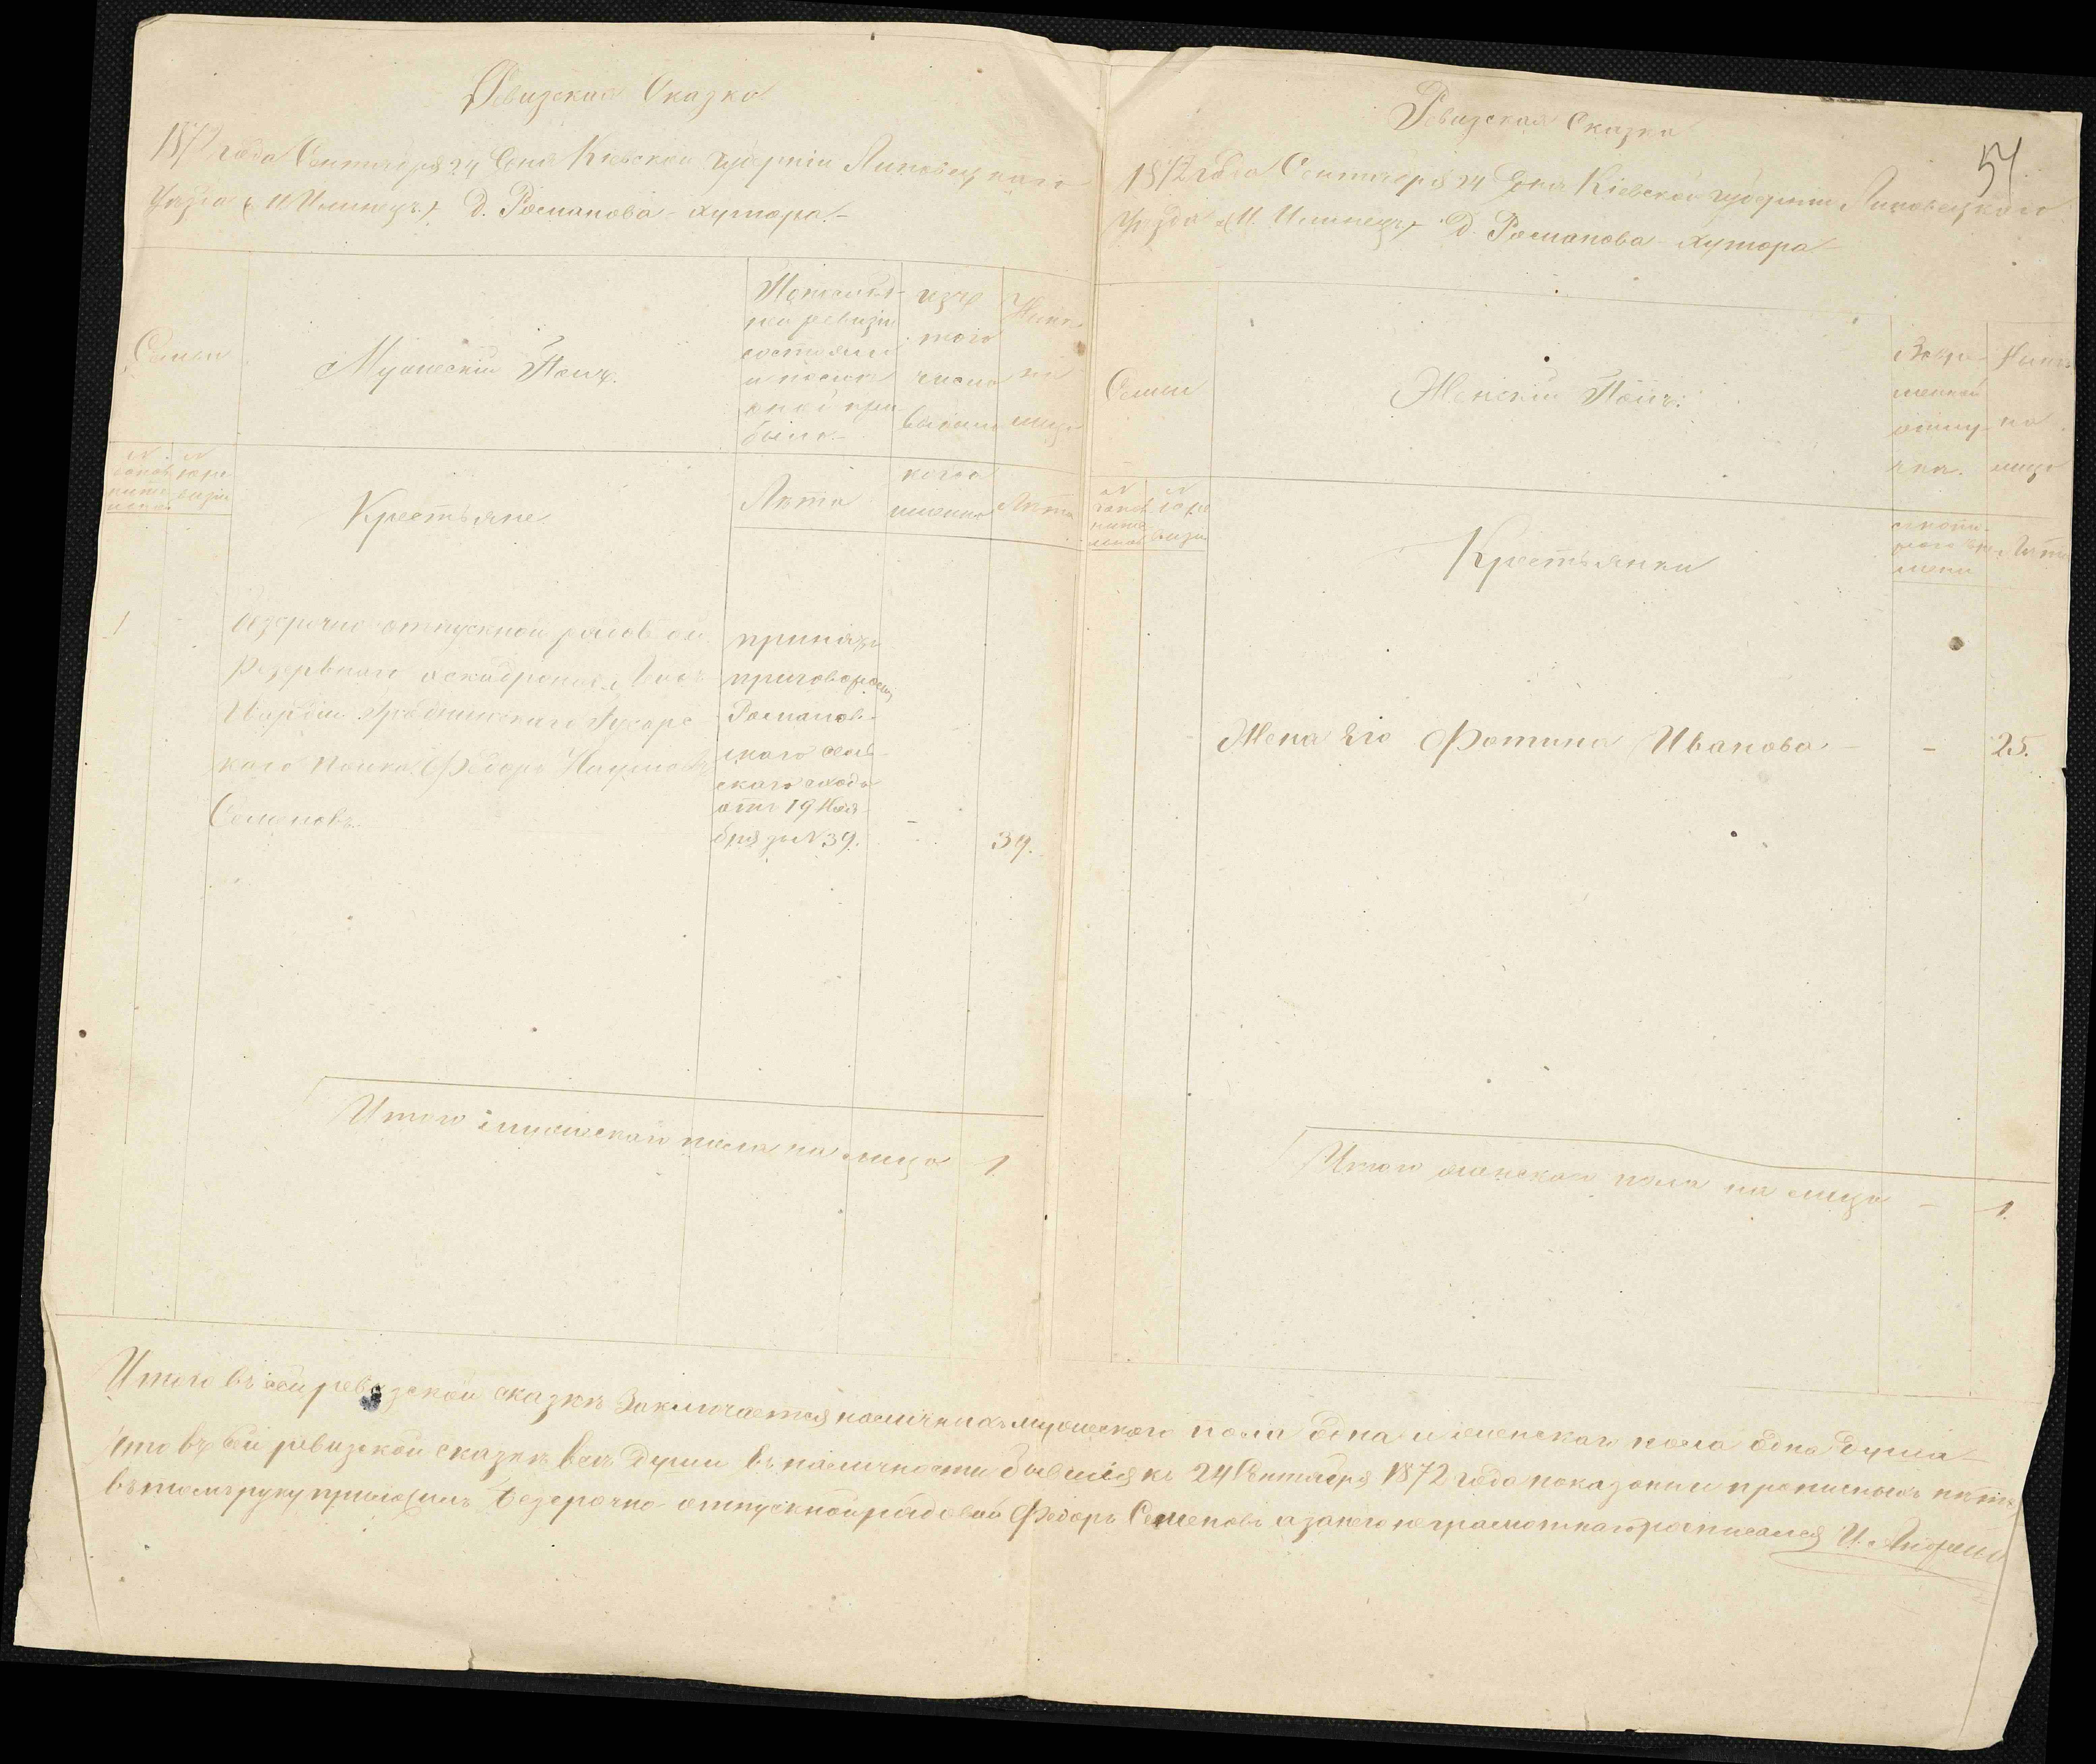 Ревизская Сказка
1872 года Сентября 24 дня Кіевской губерніи Липовецкаго
Уѣзда (М. Илинецъ) Д. Романова-хутора
Семьи
Мужескій Полъ.
По послѣд-
ней ревизіи
состояло
и послѣ
оной при
было
изъ
того
числа
выбыло
Нынѣ
на
лицо
№
№
Крестьяне
Лѣта
когда
именно
Лѣта
1
безсрочно отпускной рядовой
Резервнаго эскадрона Лейбъ
Гвардіи Гродненскаго Гусарс
каго Полка Федоръ Наумовъ
Семеновъ
принятъ
приговоромъ
Романов-
скаго сель-
скаго схода
отъ 19 Ноя-
бря за № 39.
39.
Итого мужескаго пола на лицо 1.
54
Ревизская Сказка
1872 года Сентября 24 дня Кіевской губерніи Липовецкаго
Уѣзда (М. Илинецъ) Д. Романова-хутора
Семьи
Женскій Полъ:
Во вре-
менной
отлу-
чкѣ.
Нынѣ
на
лицо
№
№
Крестьянки
съ кото-
раго вре
мени
Лѣта
Жена его Фотина Иванова - - 25.
Итого женскаго пола на лицо - 1.
Итого въ сей ревизской сказкѣ Заключается наличныхъ мужескаго пола Една и женскаго пола Една Душа
Что въ сей ревизской сказкѣ всѣ Души въ наличности бывшія къ 24 Сентября 1872 года показаны и прописныхъ нѣтъ
въ томъ руку приложилъ безсрочно отпускной рядовой Федоръ Семеновъ а за него неграмотнаго росписался И.